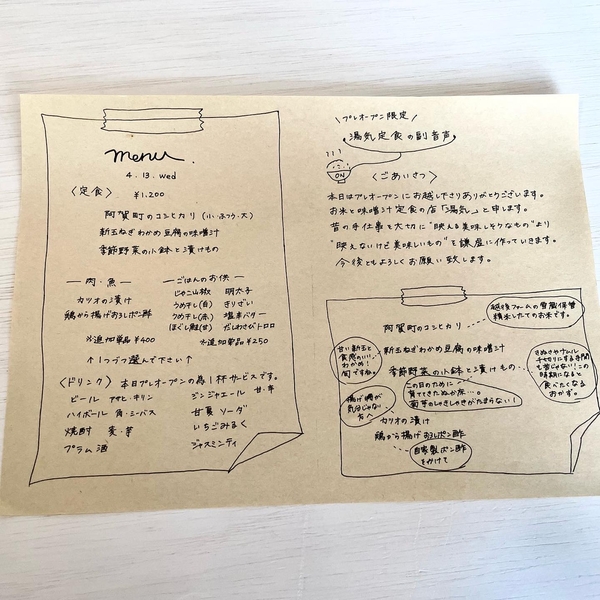 menu
4.13.wed
〈定食〉 ¥1,200
阿賀町のコシヒカリ (小・ふつう・大)
新玉ねぎわかめ豆腐の味噌汁
季節野菜の小鉢と漬けもの
― 肉・魚 ―
カツオの漬け
鶏から揚げおろしポン酢
※追加単品¥400
― ごはんのお供 ―
じゃこ山椒 明太子
うめ干し(白) きりざい
うめ干し(赤) 塩辛バター
ほぐし鮭(甘) だしわさびトロロ
※追加単品¥250
↑1つづつ選んで下さい↑
〈ドリンク〉 本日プレオープンの為1杯サービスです。
ビール アサヒ・キリン
ハイボール 角・シーバス
焼酎 麦・芋
プラム酒
ジンジャエール 甘・辛
甘夏ソーダ
いちごみるく
ジャスミンティ
\プレオープン限定/
湯気定食の副音声
ON
〈ごあいさつ〉
本日はプレオープンにお越し下さりありがとうございます。
お米と味噌汁定食の店「湯気」と申します。
昔の手仕事を大切に"映える美味しそうなもの"より
"映えないけど美味しいもの"を謙虚に作っていきます。
今後ともよろしくお願い致します。
越後ファームの雪蔵保管
精米したてのお米です。
阿賀町のコシヒカリ
甘い新玉と
食感のいい
わかめ!
旬ですね。
新玉ねぎわかめ豆腐の味噌汁
季節野菜の小鉢と漬けもの
この日のために
育ててきたぬか床…。
菊芋のしゃきしゃきがたまらない!
きぬさやナムル
チマチマにする手間
も惜しない!この
時期になると
食べたくなる
おかず。
揚げ物が
気分じゃない
方へ
カツオの漬け
鶏から揚げおろしポン酢
自家製ポン酢
をかけて